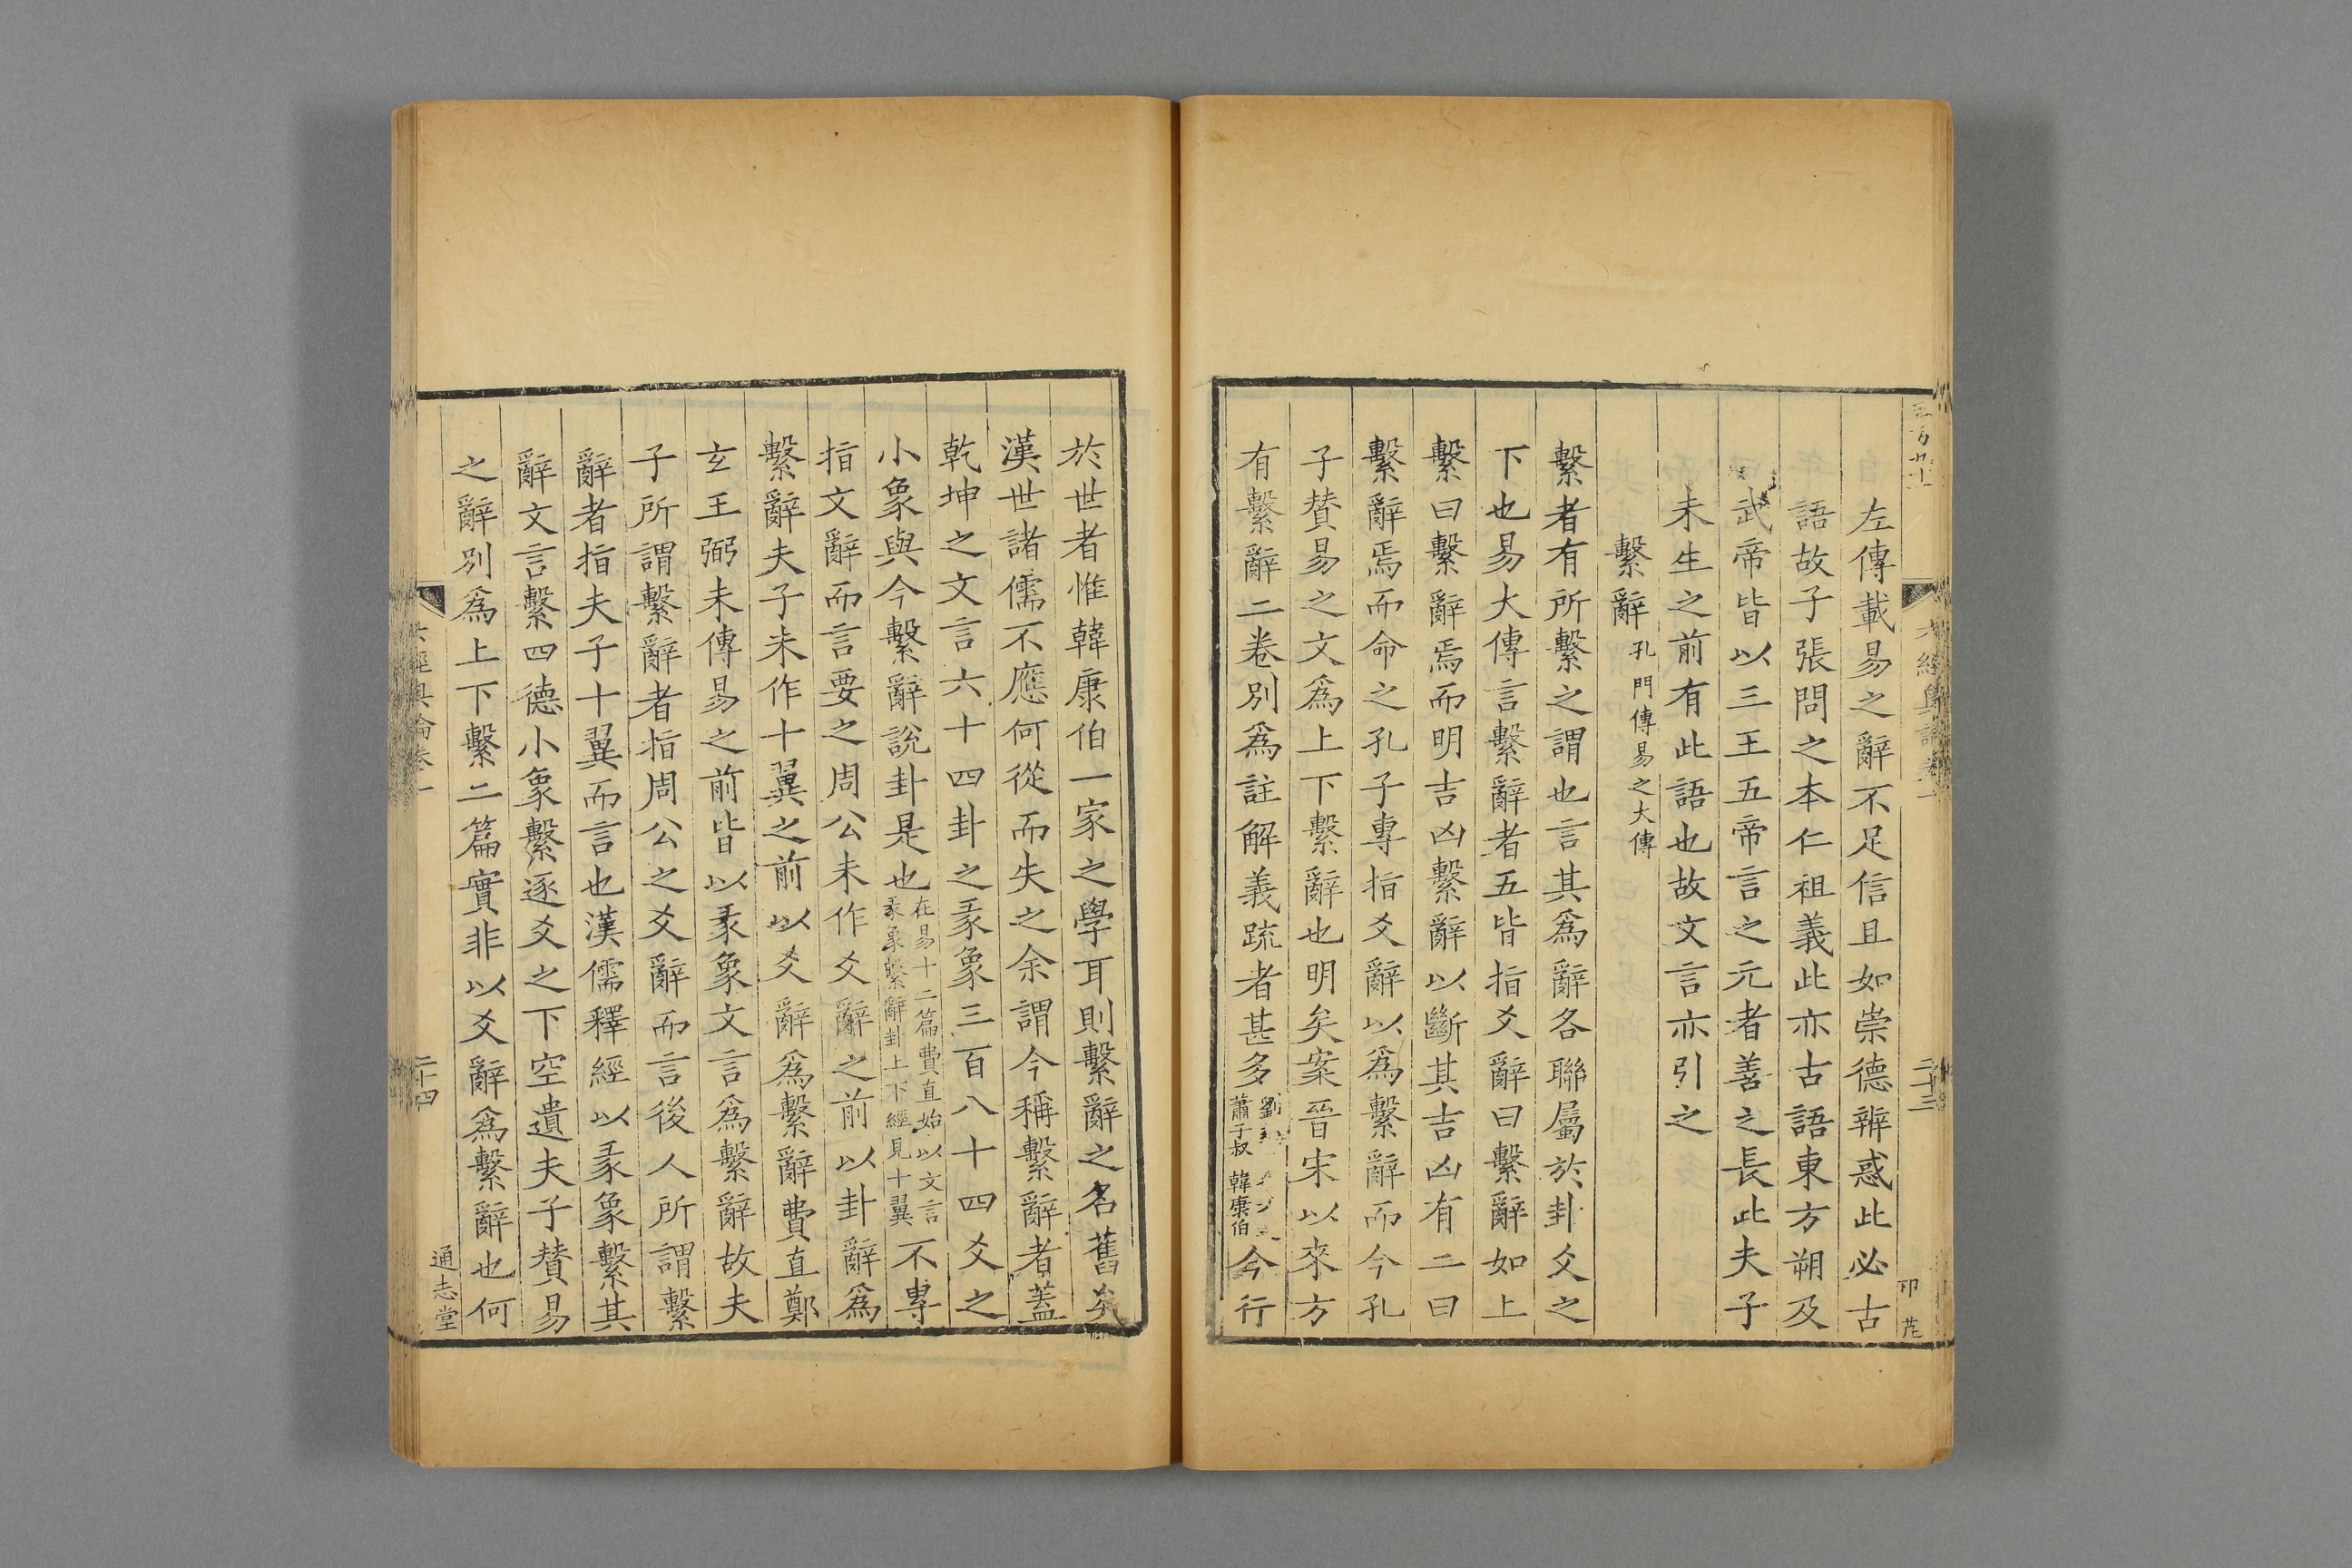 左傳載易之辭不足信且如崇德辨惑此必古
語故子張問之本仁祖義此亦古語東方朔及
武帝皆以三王五帝言之元者善之長此夫子
未生之前有此語也故文言亦引之
繫辭孔門傳易之大傳
繫者有所繫之謂也言其爲辭各聯屬於卦爻之
下也易大傳言繫辭者五皆指爻辭曰繫辭如上
繫曰繫辭焉而明吉凶繫辭以斷其吉凶有二曰
繫辭焉而命之孔子專指爻辭以爲繫辭而今孔
子賛易之文爲上下繫辭也明矣案晉宋以來方
有繫辭二卷別爲註解義疏者甚多劉
蕭子叔 韓康伯
今行
六經奧論卷一
二十三
於世者惟韓康伯一家之學耳則繫辭之名舊矣
漢世諸儒不應何從而失之余謂今稱繫辭者蓋
乾坤之文言六十四卦之彖象三百八十四爻之
小象與今繫辭說卦是也在易十二篇費直始以文言
彖象繫辭卦上下經見十翼
不專
指文辭而言要之周公未作爻辭之前以卦辭爲
繫辭夫子未作十翼之前以爻辭爲繫辭費直鄭
玄王弼未傳易之前皆以彖象文言爲繫辭故夫
子所謂繫辭者指周公之爻辭而言後人所謂繫
辭者指夫子十翼而言也漢儒釋經以彖象繫其
辭文言繫四德小象繫逐爻之下空遺夫子賛易
之辭別爲上下繫二篇實非以爻辭爲繫辭也何
六經奧論卷一
二十四
通志堂